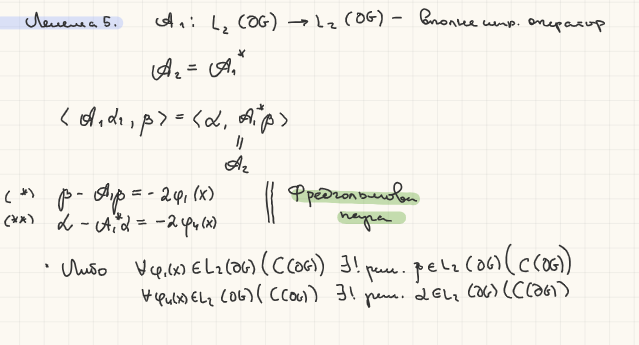 Лемма 5. A₁: L₂(∂G) → L₂(∂G) – вполне непр. оператор
A₂ = A₁*
⟨A₁α₁, β⟩ = ⟨α, A₁*β⟩
||
A₂
(*) β - A₁β = -2φ₁(x) || Фредгольмова
(**) α - A₁*α = -2φ₄(x) пара
• Либо ∀φ₁(x) ∈ L₂(∂G)(C(∂G)) ∃! реш. β ∈ L₂(∂G)(C(∂G))
∀φ₄(x) ∈ L₂(∂G)(C(∂G)) ∃! реш. α ∈ L₂(∂G)(C(∂G))